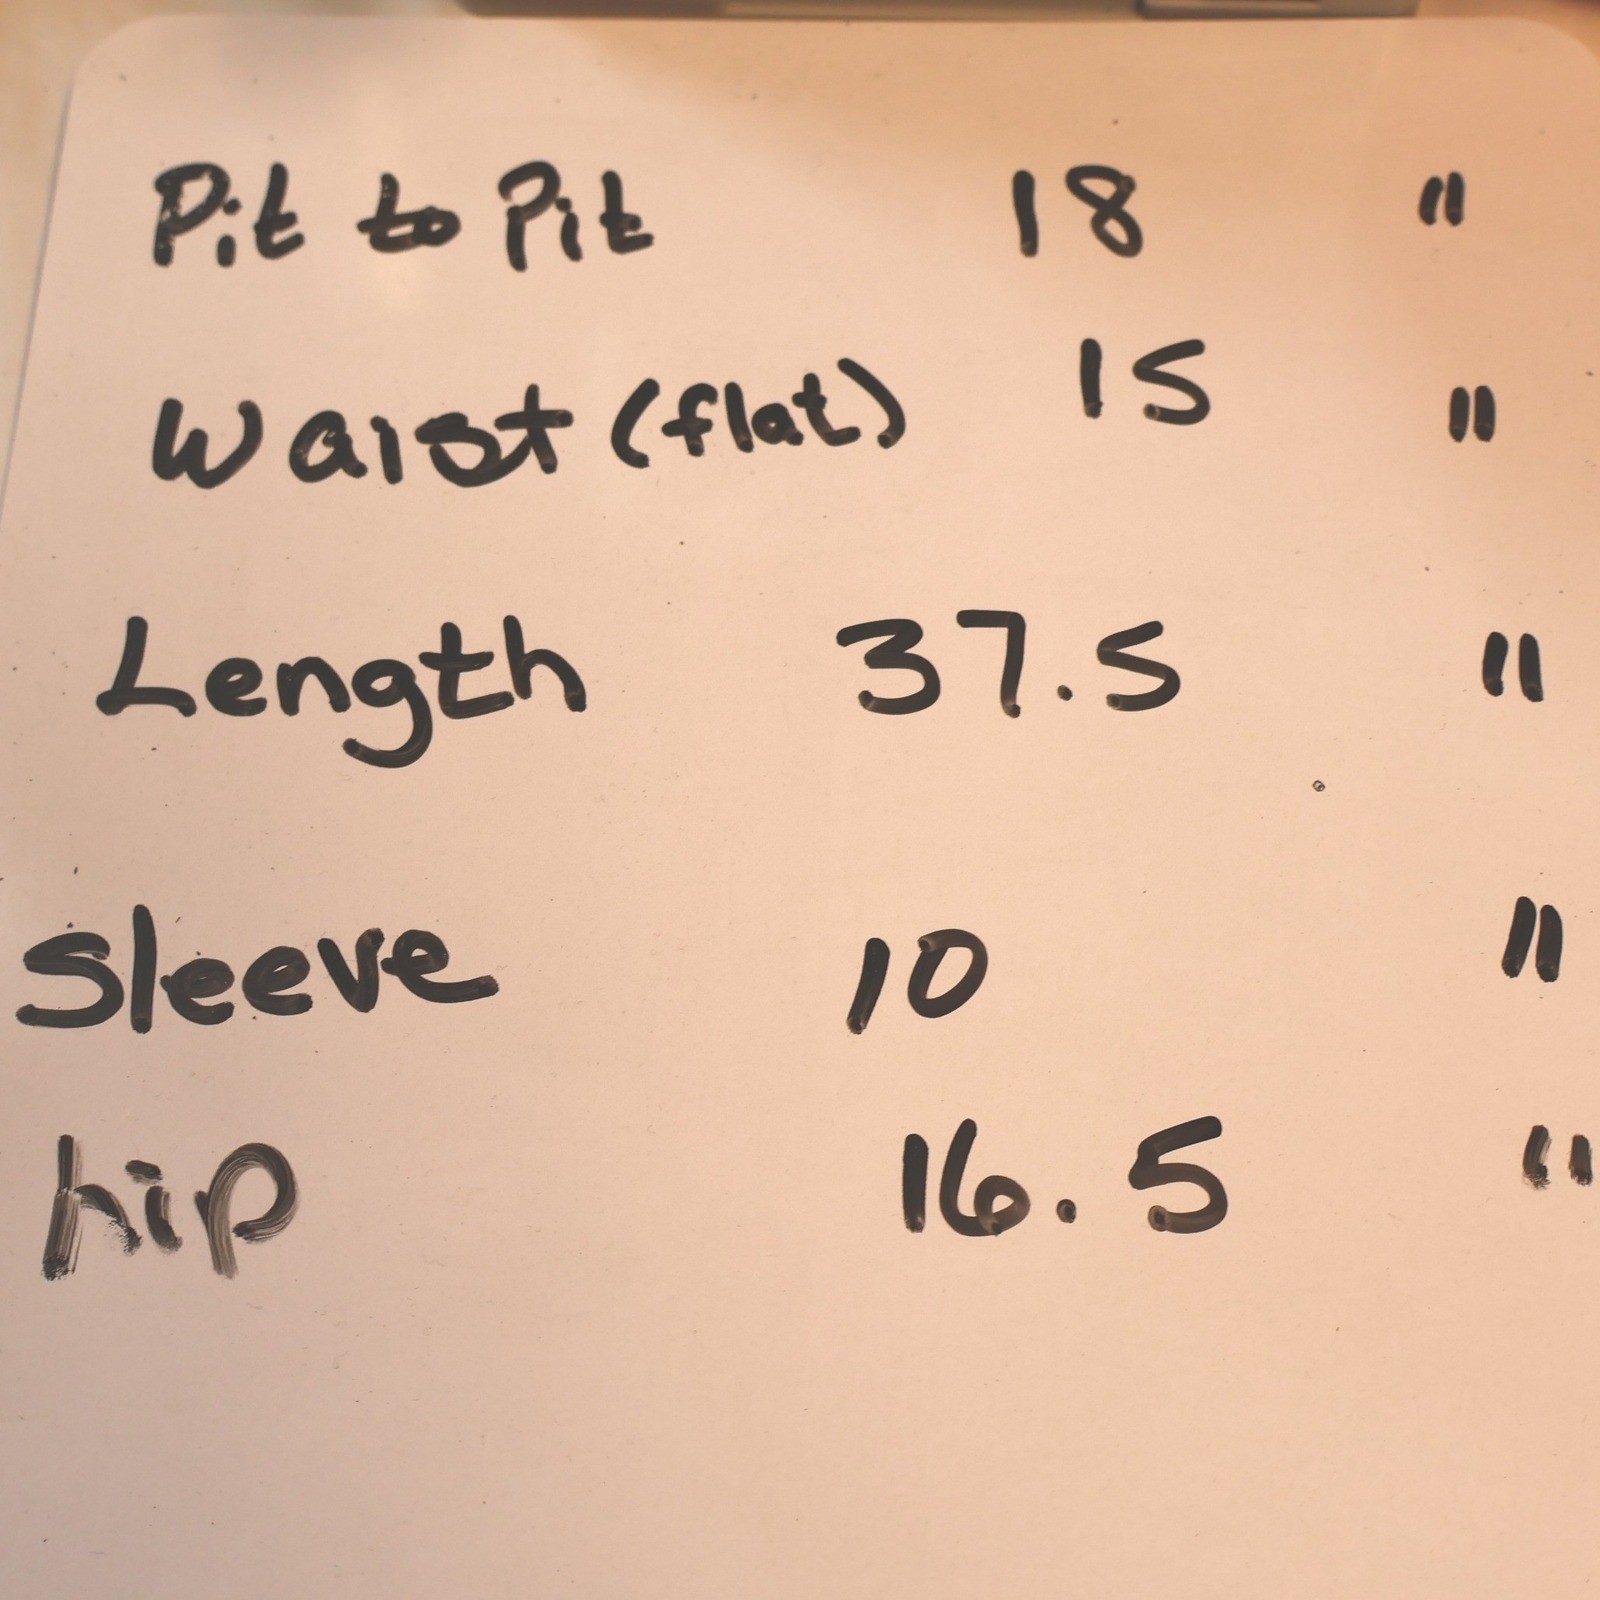 Pit to Pit 18 "
Waist (flat) 15 "
Length 37.5 "
Sleeve 10 "
hip 16.5 "